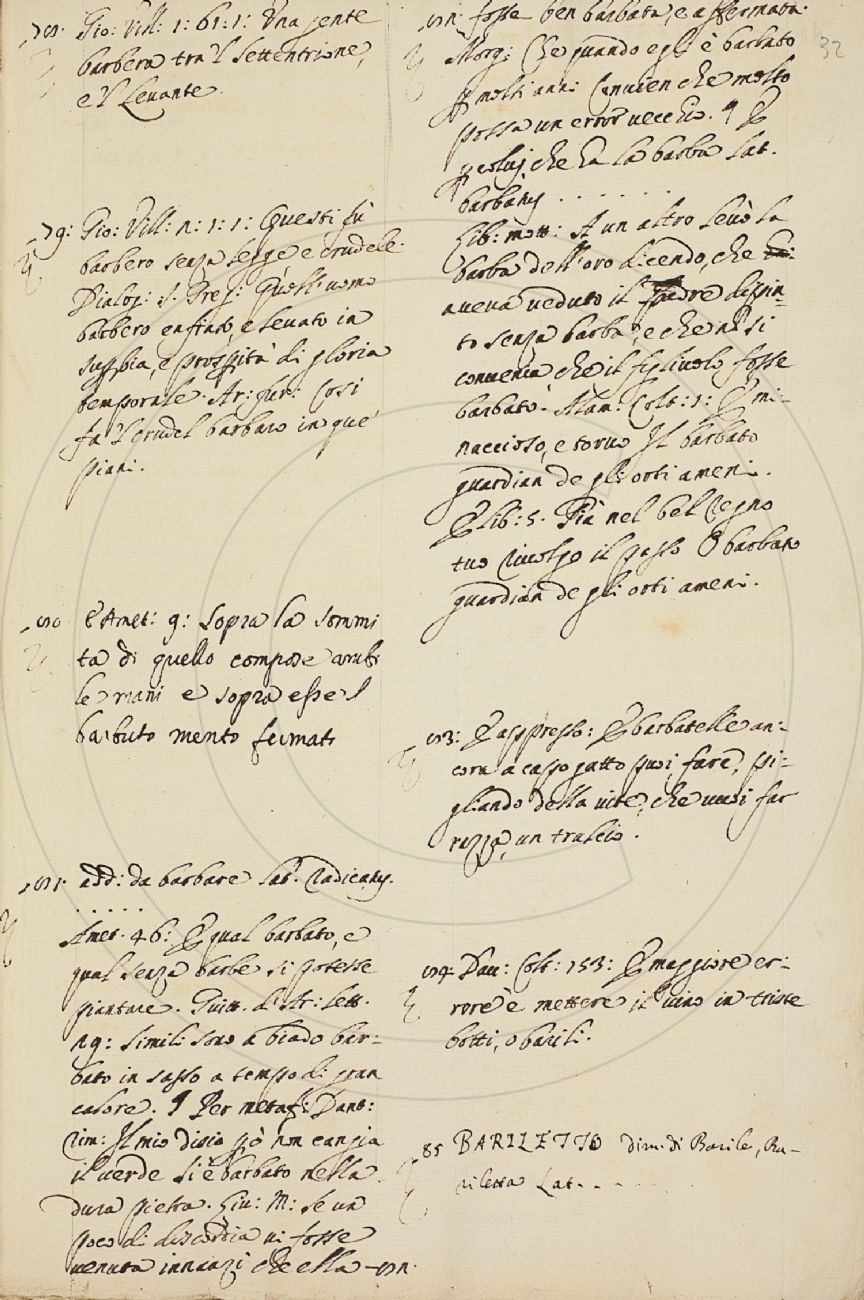 Gio: Vill: 1: 61: 1: Una gente
barbera tra 'l settentrione,
e 'l Levante.
79: Gio: Vill: n: 1: 1: Questi fù
barbero senza legge e crudele.
Dialog: S. Greg: Quell'uomo
barbero enfiato, e levato in
supbia, e prospità di gloria
temporale. Ar: fur: Così
fa 'l crudel barbaro in que'
piani.
Amet: 9: sopra la sommi
tà di quello compose ambi
le mani e sopra esse 'l
barbuto mento fermati
add: da barbare Lat. radicatus.
. . . . .
Amet. 46: E qual barbato, e
qual senza barbe si potesse
piantare. Guitt. d'Ar: lett.
29: simili sono a biado bar-
bato in sasso a tempo di gran
calore. ¶ Per metaf: Dant:
rim: Il mio disio pò non cangia
il verde si è barbato nella
dura pietra. Liv: M: se un
poco di discordia vi fosse
venuta innanzi che ella
32
fosse ben barbata, e affermata.
Morg: Che quando egli è barbato
p molti anni convien che molto
possa un error vecchio. ¶ E
p colui, che ha la barba Lat.
barbatus . . . . . . .
Lib: mott: A un altro levò la
barba dell'oro dicendo, che
aveva veduto il padre dipin-
to senza barba, e che nõ si
convenia, che il figliuolo fosse
barbato. Alam: Colt: 1: E mi-
naccioso, e torvo Il barbato
guardian de gli orti ameni.
E lib: 5. Già nel bel regno
tuo rivolgo il passo O barbato
guardian de gli orti ameni.
E appresso: E barbatelle an-
cora a capo gatto puoi fare, pi-
gliando della vite, che vuoi far
razza, un tralcio.
Dav: Colt: 153: E maggiore er-
rore è mettere il vino in triste
botti, o barili.
85 BARILETTO dim: di Barile, Ba-
riletta Lat. . . . . . .